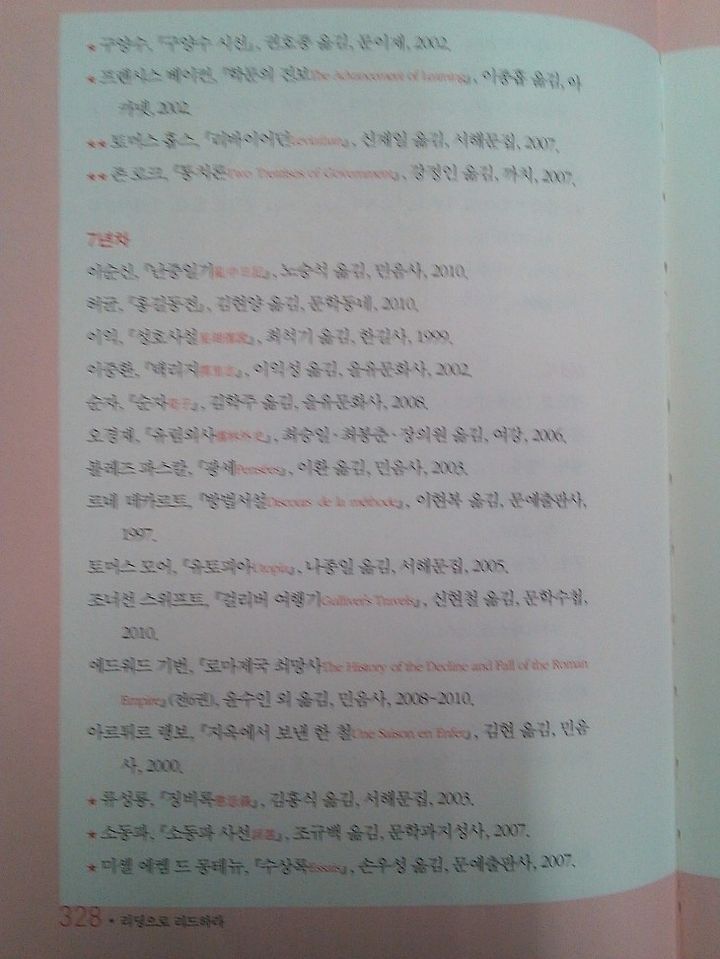 ★ 구양수, 『구양수 사선』, 권호종 옮김, 문이재, 2002.
★ 프랜시스 베이컨, 『학문의 진보The Advancement of Learning』, 이종흡 옮김, 아
카넷, 2002.
★★ 토머스 홉스, 『리바이어던Leviathan』, 신재일 옮김, 서해문집, 2007.
★★ 존 로크, 『통치론Two Treatises of Government』, 강정인 옮김, 까치, 2007.
7년차
이순신, 『난중일기亂中日記』, 노승석 옮김, 민음사, 2010.
허균, 『홍길동전』, 김현양 옮김, 문학동네, 2010.
이익, 『성호사설星湖僿說』, 최석기 옮김, 한길사, 1999.
이중환, 『택리지擇里志』, 이익성 옮김, 을유문화사, 2002.
순자, 『순자荀子』, 김학주 옮김, 을유문화사, 2008.
오경재, 『유림외사儒林外史』, 최승일·최봉춘·장의원 옮김, 여강, 2006.
블레즈 파스칼, 『팡세Pensées』, 이환 옮김, 민음사, 2003.
르네 데카르트, 『방법서설Discours de la méthode』, 이현복 옮김, 문예출판사,
1997.
토머스 모어, 『유토피아Utopia』, 나종일 옮김, 서해문집, 2005.
조너선 스위프트, 『걸리버 여행기Gulliver's Travels』, 신현철 옮김, 문학수첩,
2010.
에드워드 기번, 『로마제국 쇠망사The History of the Decline and Fall of the Roman
Empire』(전6권), 윤수인 외 옮김, 민음사, 2008~2010.
아르튀르 랭보, 『지옥에서 보낸 한 철Une Saison en Enfer』, 김현 옮김, 민음
사, 2000.
★ 류성룡, 『징비록懲毖錄』, 김흥식 옮김, 서해문집, 2003.
★ 소동파, 『소동파 사선詞選』, 조규백 옮김, 문학과지성사, 2007.
★ 미셸 에켐 드 몽테뉴, 『수상록Essais』, 손우성 옮김, 문예출판사, 2007.
328 · 리딩으로 리드하라